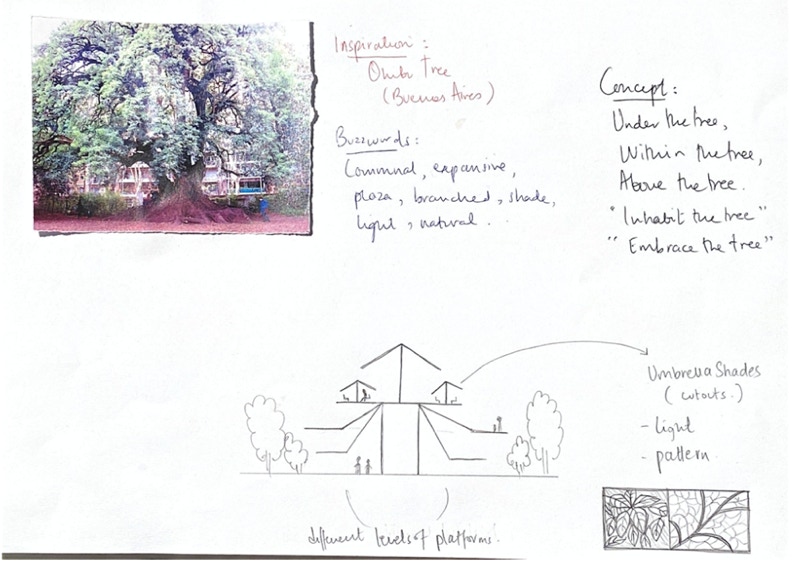 Inspiration:
Ombu Tree
(Buenos Aires)
Buzzwords:
Communal, expansive,
plaza, branched, shade,
light, natural.
Concept:
Under the tree,
Within the tree,
Above the tree.
"Inhabit the tree"
"Embrace the tree"
Umbrella Shades
(cutouts.)
- light
- pattern
different levels of platforms.